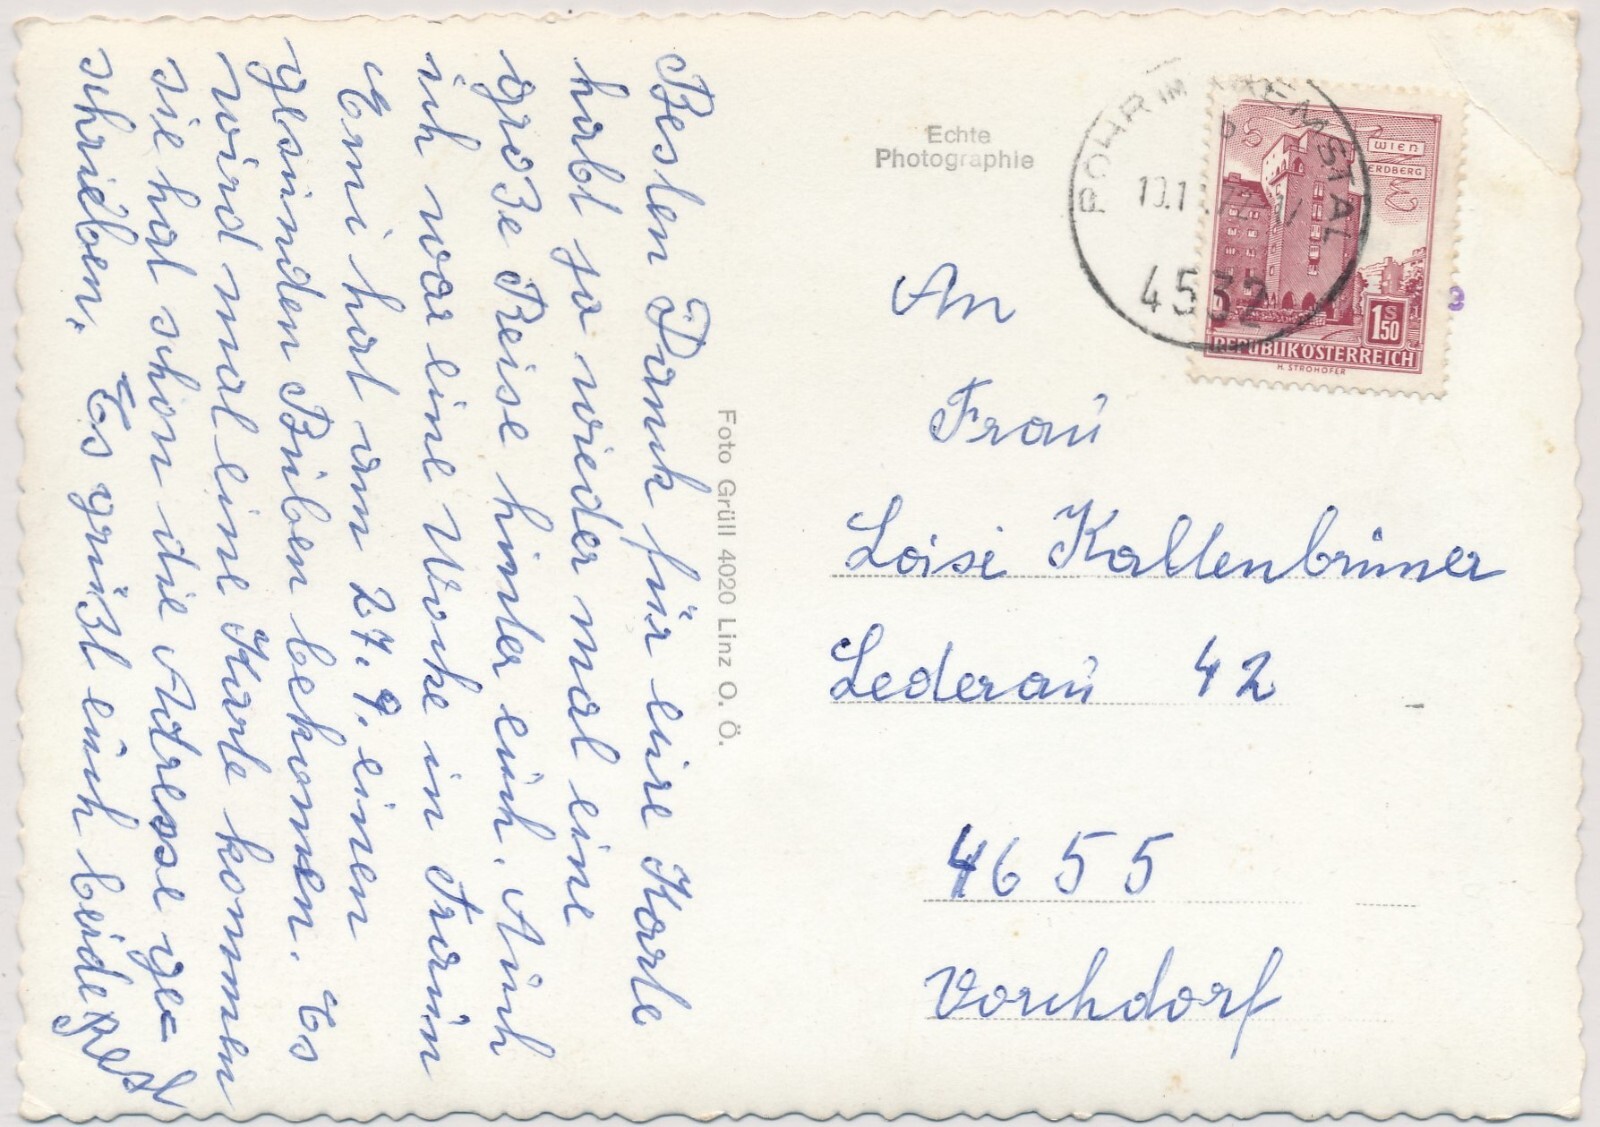 Besten Dank für eure Karte
habt ja wieder mal eine
große Reise hinter euch. Auch
ich war eine Woche in
Emi hat am 27. 9. einen
gesunden Buben bekommen. Es
wird mal eine Karte kommen
sie hat schon die Adresse ge-
schrieben. Es grüßt euch beide
Foto Grüll 4020 Linz O. Ö.
Echte
Photographie
ROHR IM KREMSTAL
4532
WIEN
ERDBERG
1 S 50
REPUBLIK ÖSTERREICH
H. STROHOFER
An
Frau
Loisi Kaltenbrunner
Lederau 42
4655
Vorchdorf